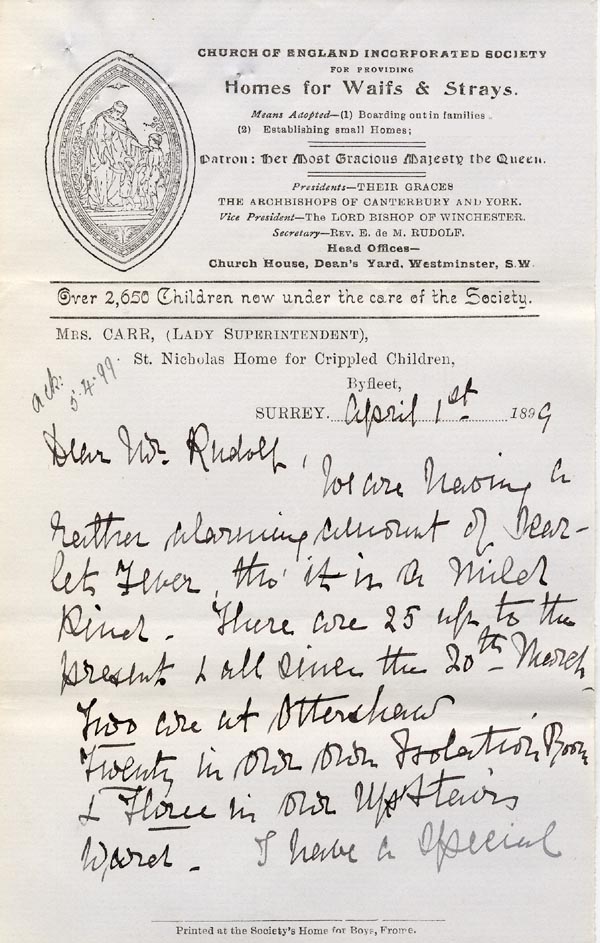 CHURCH OF ENGLAND INCORPORATED SOCIETY
FOR PROVIDING
Homes for Waifs & Strays.
Means Adopted—(1) Boarding out in families.
(2) Establishing small Homes;
Patron: Her Most Gracious Majesty the Queen.
Presidents—THEIR GRACES
THE ARCHBISHOPS OF CANTERBURY AND YORK.
Vice President—The LORD BISHOP OF WINCHESTER.
Secretary—REV. E. de M. RUDOLF.
Head Offices—
Church House, Dean's Yard, Westminster, S.W.
Over 2,650 Children now under the care of the Society.
MRS. CARR, (LADY SUPERINTENDENT),
St. Nicholas Home for Crippled Children,
Byfleet,
ack: 5.4.99
SURREY. April 1st 1899
Dear Mr. Rudolf,
We are having a
rather alarming amount of Scar-
let Fever, tho' it is a mild
kind. There are 25 up to the
present & all since the 20th March
Two are at Ottershaw
Twenty in our own Isolation Room
& Three in our Up Stairs
Ward. I have a special
Printed at the Society's Home for Boys, Frome.